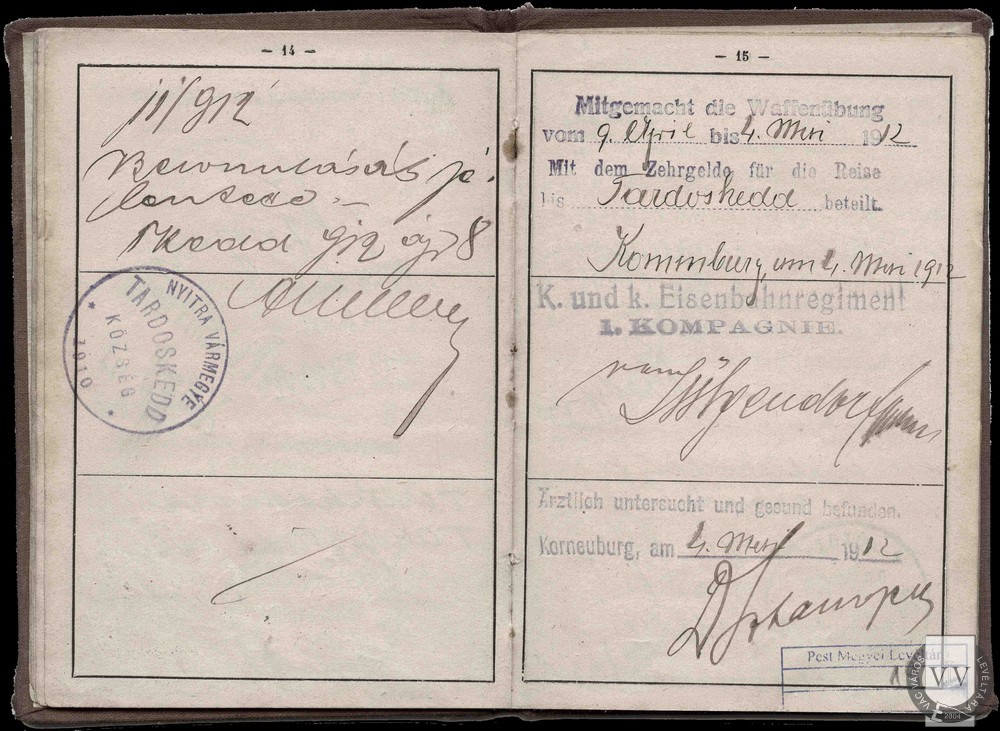 - 14 -
11/912
jelentette. -
Tkedd 912 8
NYITRA VÁRMEGYE
TARDOSKEDD
KÖZSÉG
* 1910 *
- 15 -
Mitgemacht die Waffenübung
vom 9. April bis 4. Mai 1912
Mit dem Zehrgelde für die Reise
bis Tardoskedd beteilt.
Korneuburg, am 4. Mai 1912
K. und k. Eisenbahnregiment
1. KOMPAGNIE.
Ärztlich untersucht und gesund befunden.
Korneuburg, am 4. Mai 1912
Pest Megyei Levéltár
VÁG VÁROS LEVÉLTÁRA
VV
2004